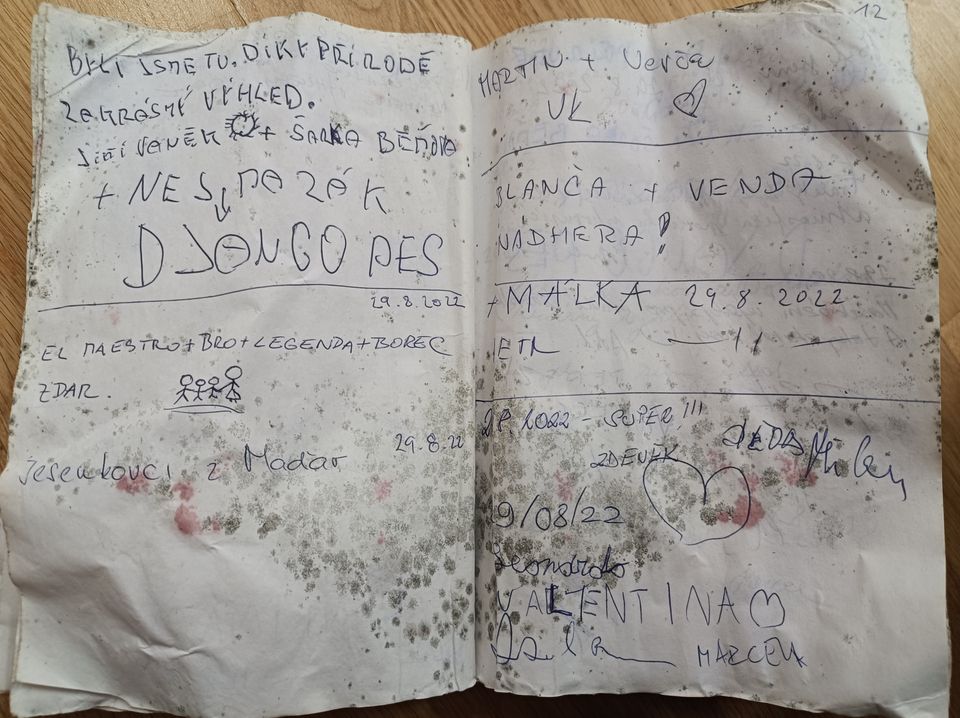 BYLI JSME TU. DÍKY PŘÍRODĚ
ZA KRÁSNÝ VÝHLED.
JIŘÍ VANĚK + ŠARKA
+ NESMAZÁK
DJANGO PES
29.8.2022
EL MAESTRO+BRO+LEGENDA+BOREC
ZDAR.
29.8.22
z Maďar
12
MARTIN + Verča
VL
BLANČA + VENDA
NÁDHERA!
+ MÁLKA 29.8.2022
PETR — 11 —
2022 - SUPER!!!
ZDENĚK
DĚDA Milan
9/08/22
Leonardo
VALENTINA
MARCELA